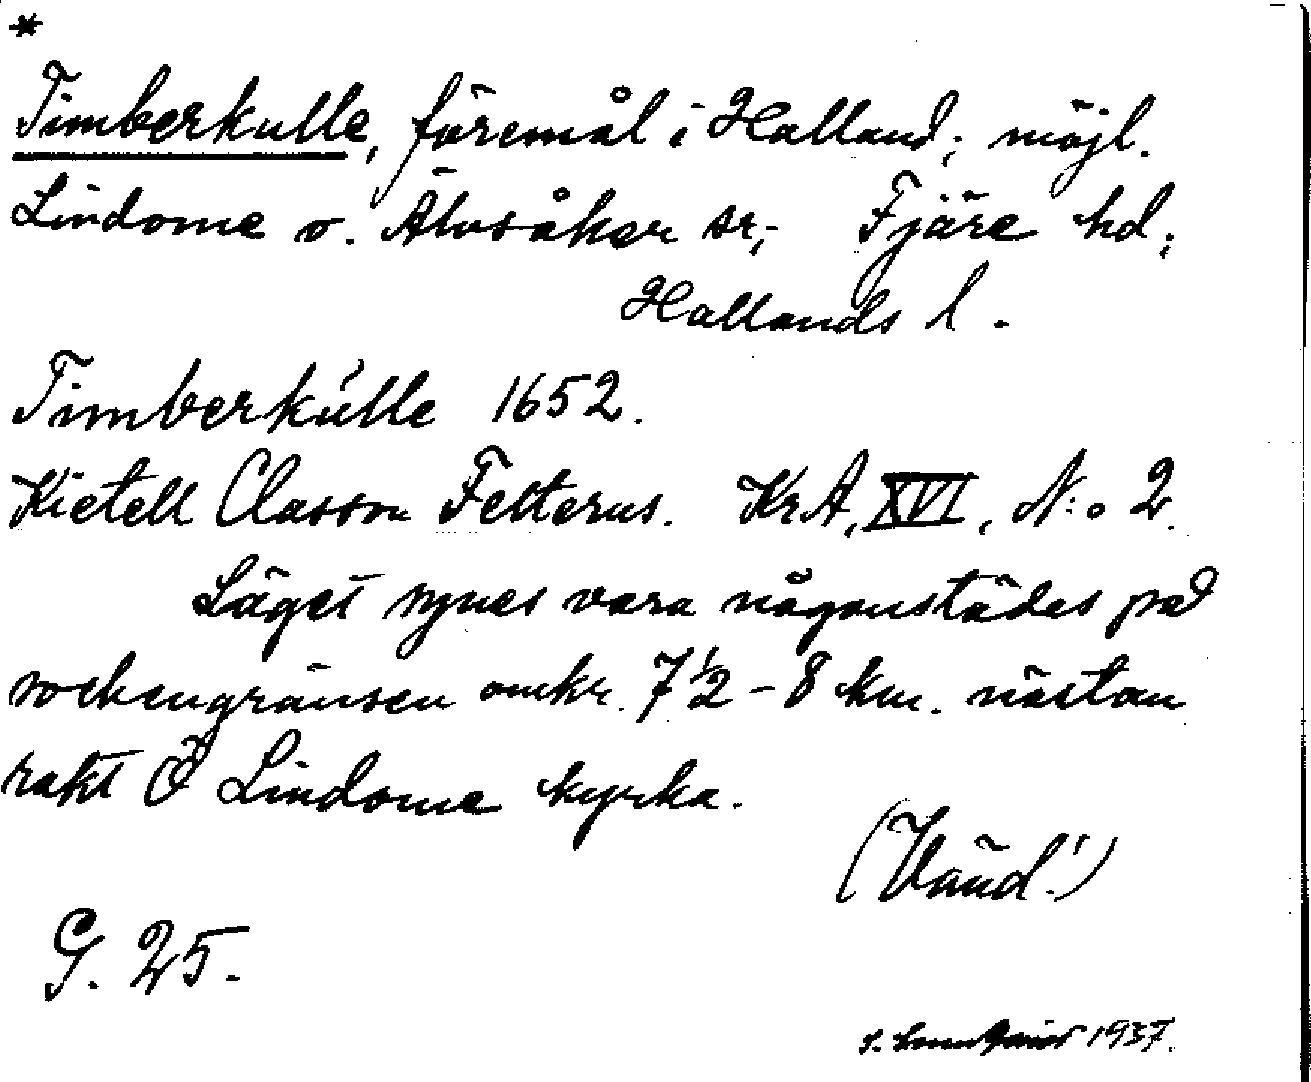 *
Timberkulle, föremål i Halland; möjl.
Lindome o. Älvsåker sr; Fjäre hd;
Hallands l.
Timberkúlle 1652.
Kietell Classon Felterus. KrA, XVI, N:o 2.
Läget synes vara någonstädes på
sockengränsen omkr. 7 1/2 - 8 km. nästan
rakt Ö Lindome kyrka.
G. 25.
1937.